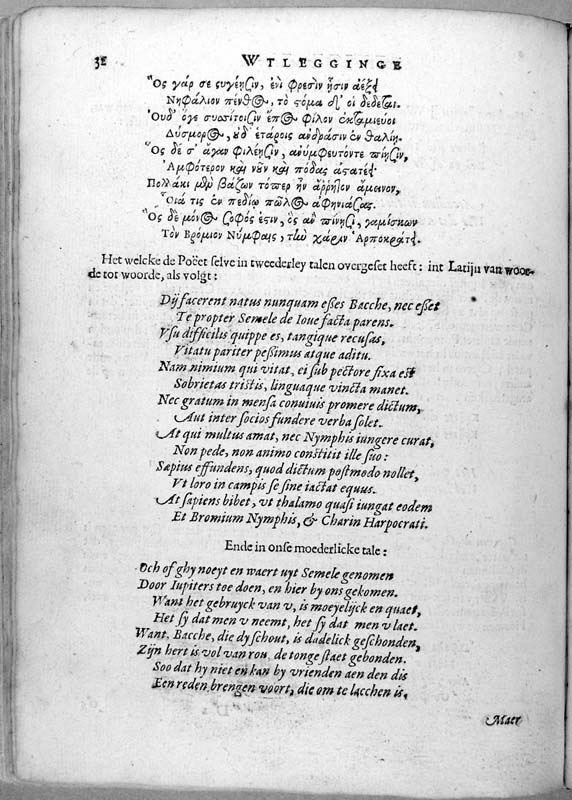 32 WTLEGGINGE
Ὃς γάρ σε στυγέῃσιν, ἐνὶ φρεσὶν ᾗσιν ἀέξει
Νηφάλιον πένθος, τὸ στόμα δ' οἱ δέδεται.
Οὐδ' ὅγε συσσίτοισιν ἔπος φίλον
Δύσμορος, οὐδ' ἑτάροις ἀνδράσιν ἐν θαλίῃ.
Ὃς δέ σ' ἄγαν φιλέῃσιν, ἀνύμφευτόν τε πίῃσιν,
Ἀμφότερον καὶ νοῦν καὶ πόδας ἀστατέει
Πολλάκι μὲν βάζων τόπερ ἦν ἄῤῥητον ἄμεινον,
Οἷά τις ἐν πεδίῳ πῶλος ἀφηνιάσας.
Ὃς δὲ μόνος σοφός ἐστιν, ὃς ἂν πίνῃσι, γαμίσκων
Τὸν Βρόμιον Νύμφαις, τὴν χάριν Ἁρποκράτει.
Het welcke de Poëet selve in tweederley talen overgeset heeft: int Latijn van woor-
de tot woorde, als volgt:
Dij facerent natus nunquam esses Bacche, nec esset
Te propter Semele de Ioue facta parens.
Vsu difficilis quippe es, tangique recusas,
Vitatu pariter pessimus atque aditu.
Nam nimium qui vitat, ei sub pectore fixa est
Sobrietas tristis, linguaque vincta manet.
Nec gratum in mensa conuiuis promere dictum,
Aut inter socios fundere verba solet.
At qui multus amat, nec Nymphis iungere curat,
Non pede, non animo constitit ille suo:
Sæpius effundens, quod dictum postmodo nollet,
Vt loro in campis se sine iactat equus.
At sapiens bibet, vt thalamo quasi iungat eodem
Et Bromium Nymphis, & Charin Harpocrati.
Ende in onse moederlicke tale:
Och of ghy noeyt en waert uyt Semele genomen
Door Iupiters toe doen, en hier by ons gekomen.
Want het gebruyck van v, is moeyelijck en quaet,
Het sy dat men v neemt, het sy dat men v laet.
Want, Bacche, die dy schout, is dadelick geschonden,
Zijn hert is vol van rou, de tonge staet gebonden.
Soo dat hy niet en kan by vrienden aen den dis
Een reden brengen voort, die om te lacchen is,
Maer